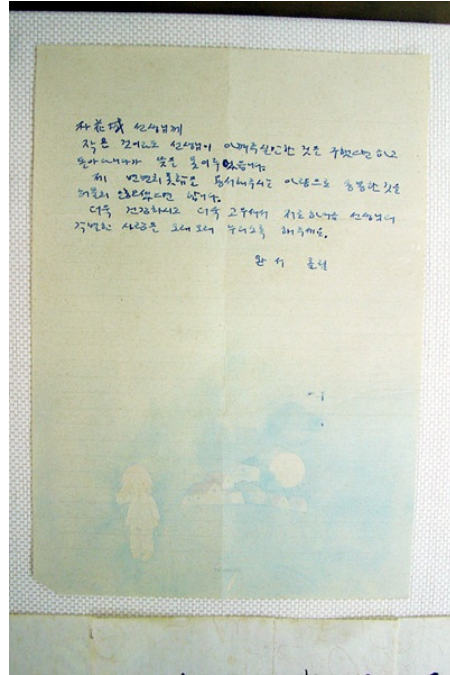 朴花城 선생님께
작은 것이라도 선생님이 아껴주실 만한 것을 구했으면 하고
돌아다니다가 뜻을 못 이루었습니다.
제 변변치 못함을 용서해주시는 마음으로 흉물한 것을
허물치 않으셨으면 합니다.
더욱 건강하시고 더욱 고우셔서 저희들 선생님의
각별한 사랑을 오래 오래 누리도록 해주세요.
완서 올림